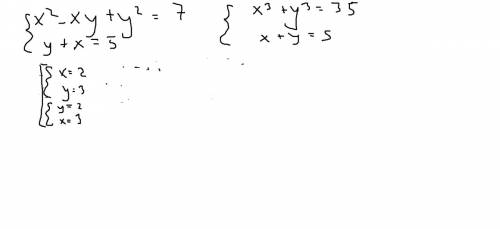 { x² - xy + y² = 7
y + x = 5
{ x³ + y³ = 35
x + y = 5
[ { x = 2
y = 3
{ y = 2
x = 3